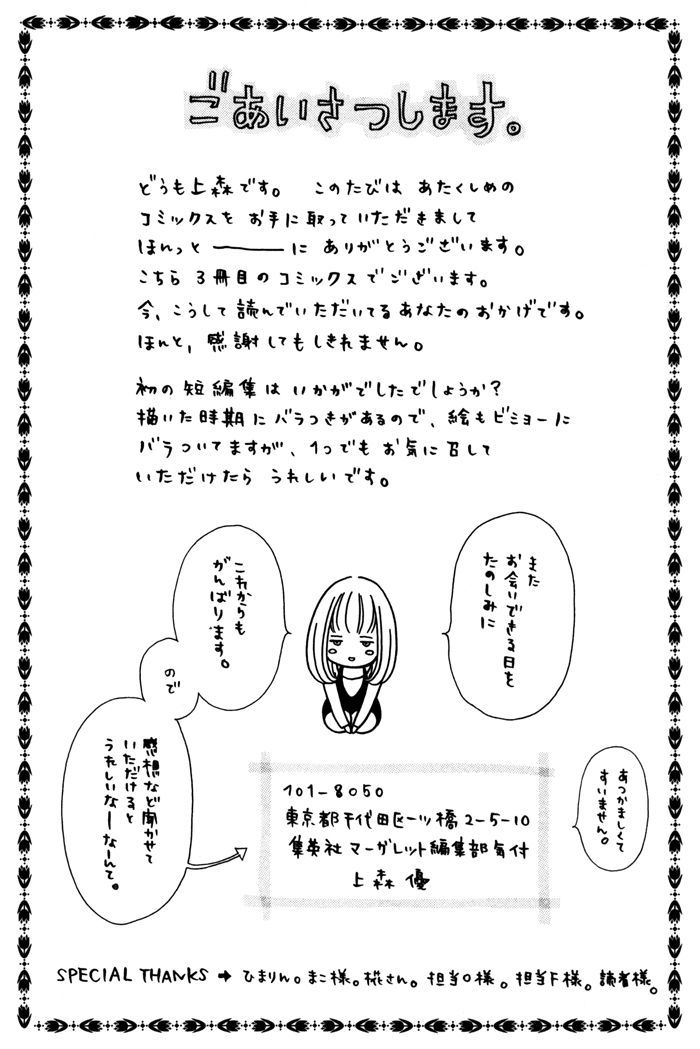 ごあいさつします。
どうも上森です。 このたびは あたくしめの
コミックスを お手に取っていただきまして
ほんっと――――に ありがとうございます。
こちら 3冊目のコミックスでございます。
今、こうして読んでいただいてるあなたのおかげです。
ほんと、感謝してもしきれません。
初の短編集は いかがでしたでしょうか?
描いた時期にバラつきがあるので、絵もビミョーに
バラついてますが、1つでも お気に召して
いただけたら うれしいです。
また
お会いできる日を
たのしみに
これからも
がんばります。
ので
感想など聞かせて
いただけると
うれしいなーなーんて。
あつかましくて
すいません。
101-8050
東京都千代田区一ツ橋2-5-10
集英社 マーガレット編集部気付
上森 優
SPECIAL THANKS → ひまりん。まこ様。椛さん。担当O様。担当F様。読者様。